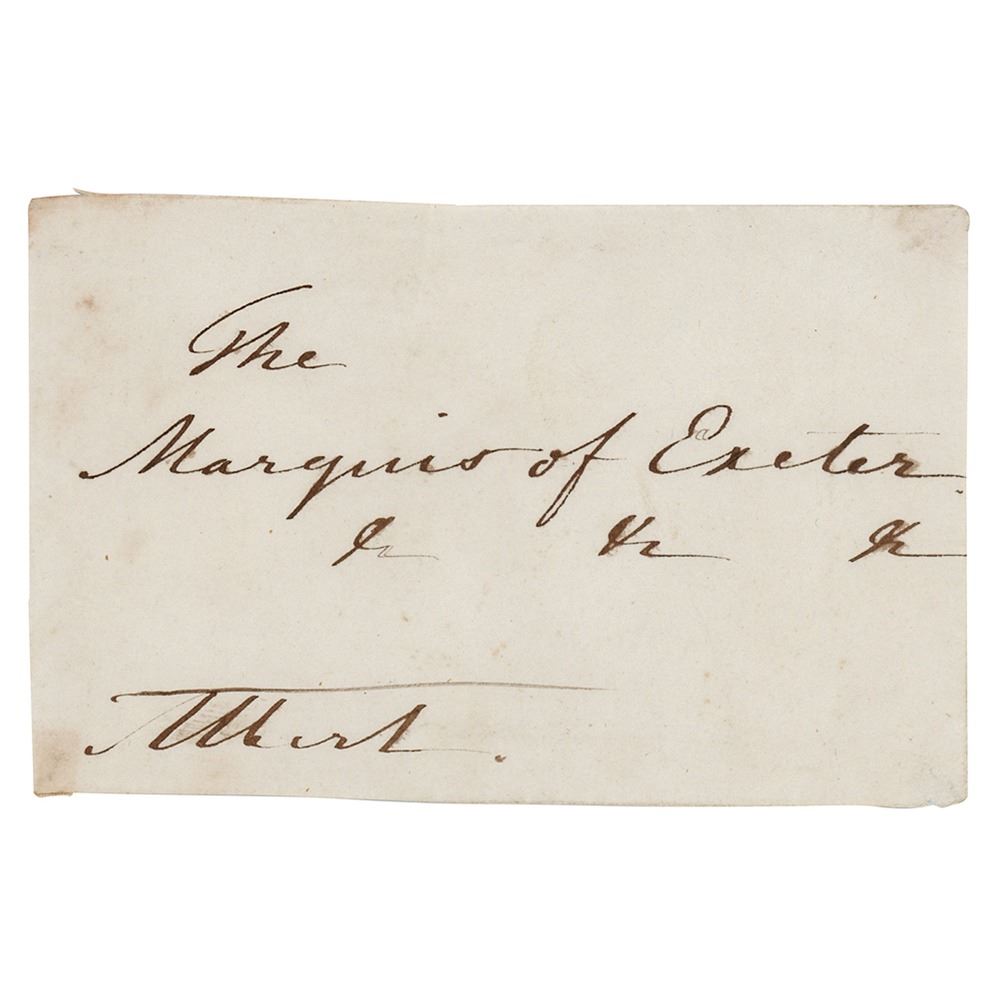 The
Marquis of Exeter.
& & &
Albert.